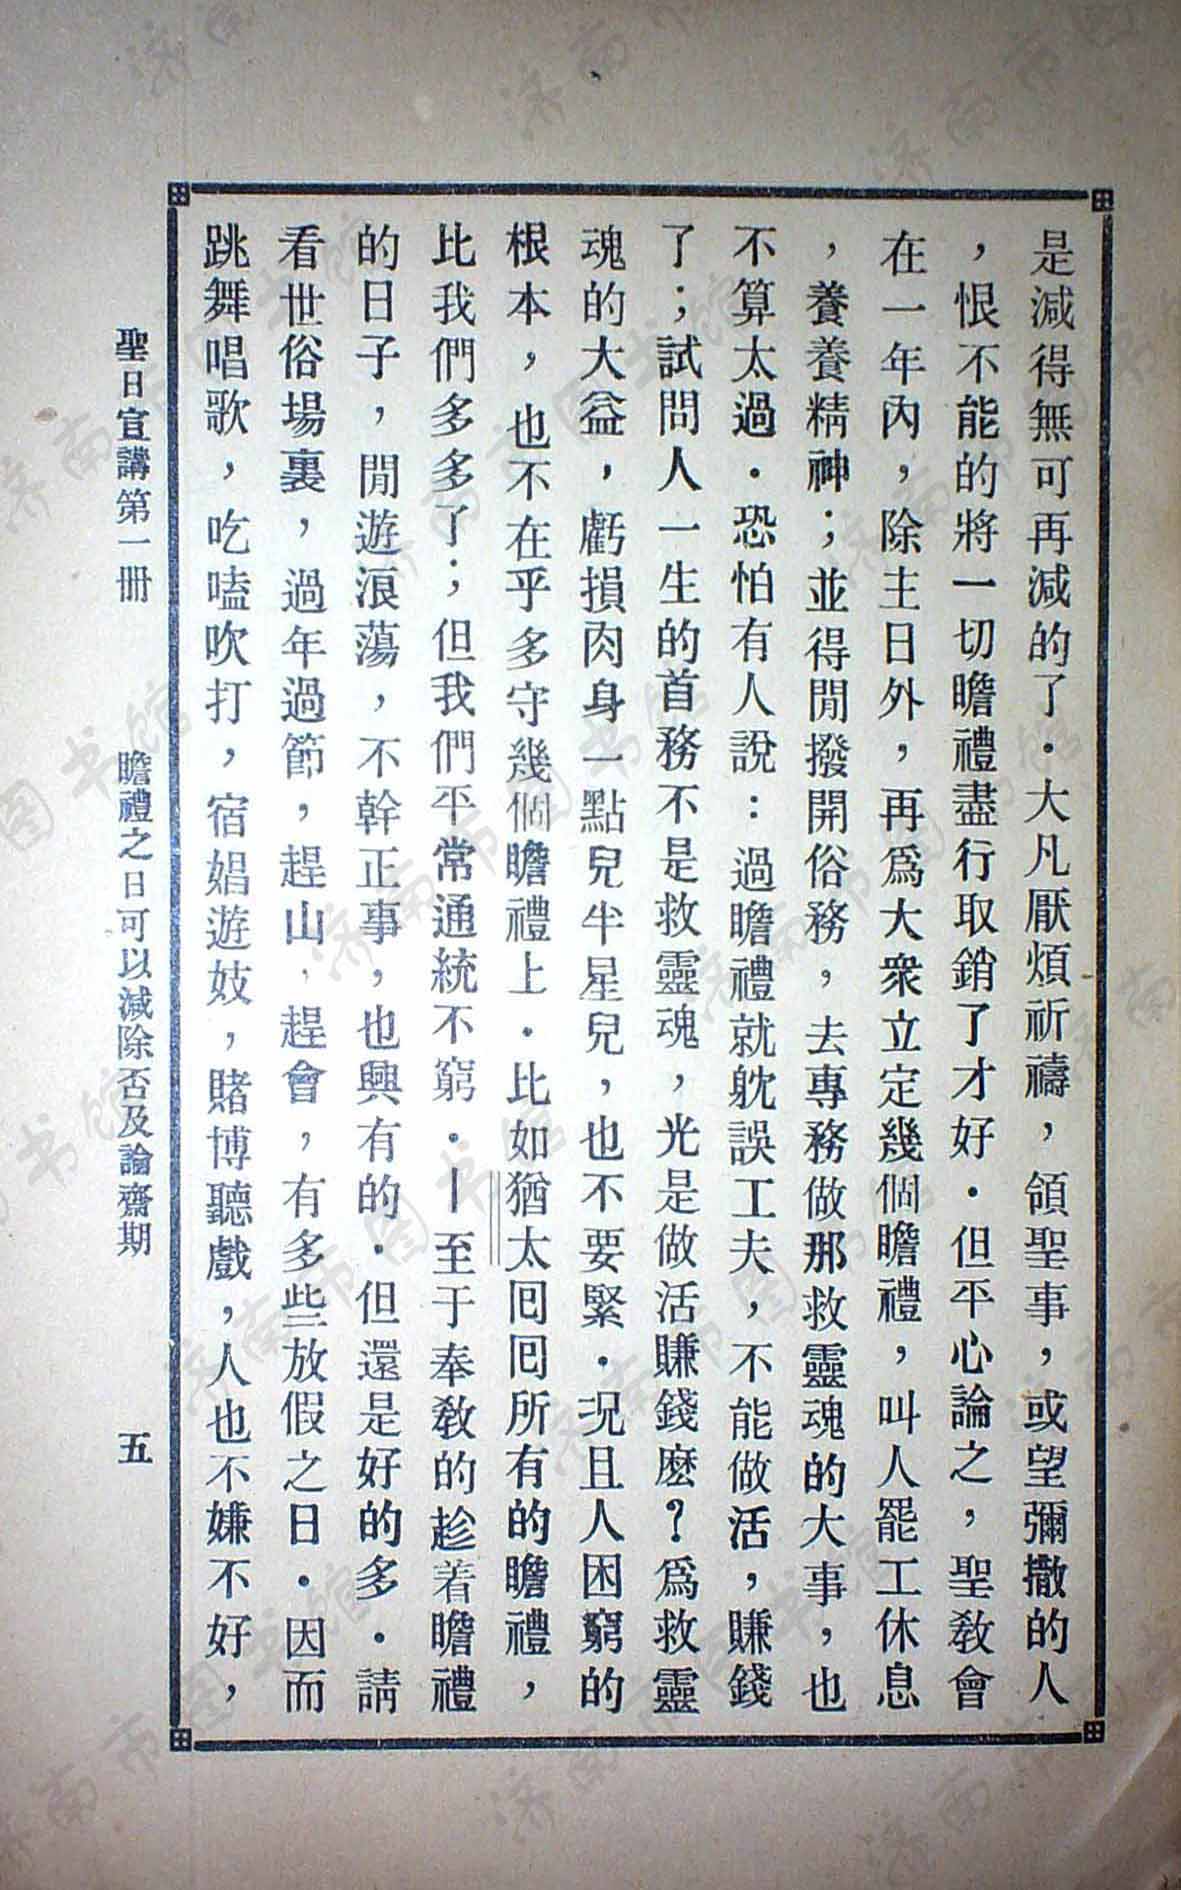 是減得無可再減的了．大凡厭煩祈禱，領聖事，或望彌撒的人
，恨不能的將一切瞻禮盡行取銷了才好．但平心論之，聖敎會
在一年內，除主日外，再爲大衆立定幾個瞻禮，叫人罷工休息
，養養精神；並得閒撥開俗務，去專務做那救靈魂的大事，也
不算太過．恐怕有人說：過瞻禮就躭誤工夫，不能做活，賺錢
了；試問人一生的首務不是救靈魂，光是做活賺錢麽？爲救靈
魂的大益，虧損肉身一點兒半星兒，也不要緊．况且人困窮的
根本，也不在乎多守幾個瞻禮上．比如猶太囘囘所有的瞻禮，
比我們多多了；但我們平常通統不窮．—至于奉敎的趁着瞻禮
的日子，閒遊浪蕩，不幹正事，也興有的．但還是好的多．請
看世俗場裏，過年過節，趕山，趕會，有多些放假之日．因而
跳舞唱歌，吃嗑吹打，宿娼遊妓，賭博聽戲，人也不嫌不好，
聖日宣講第一冊　瞻禮之日可以減除否及論齋期　五
济南市图书馆